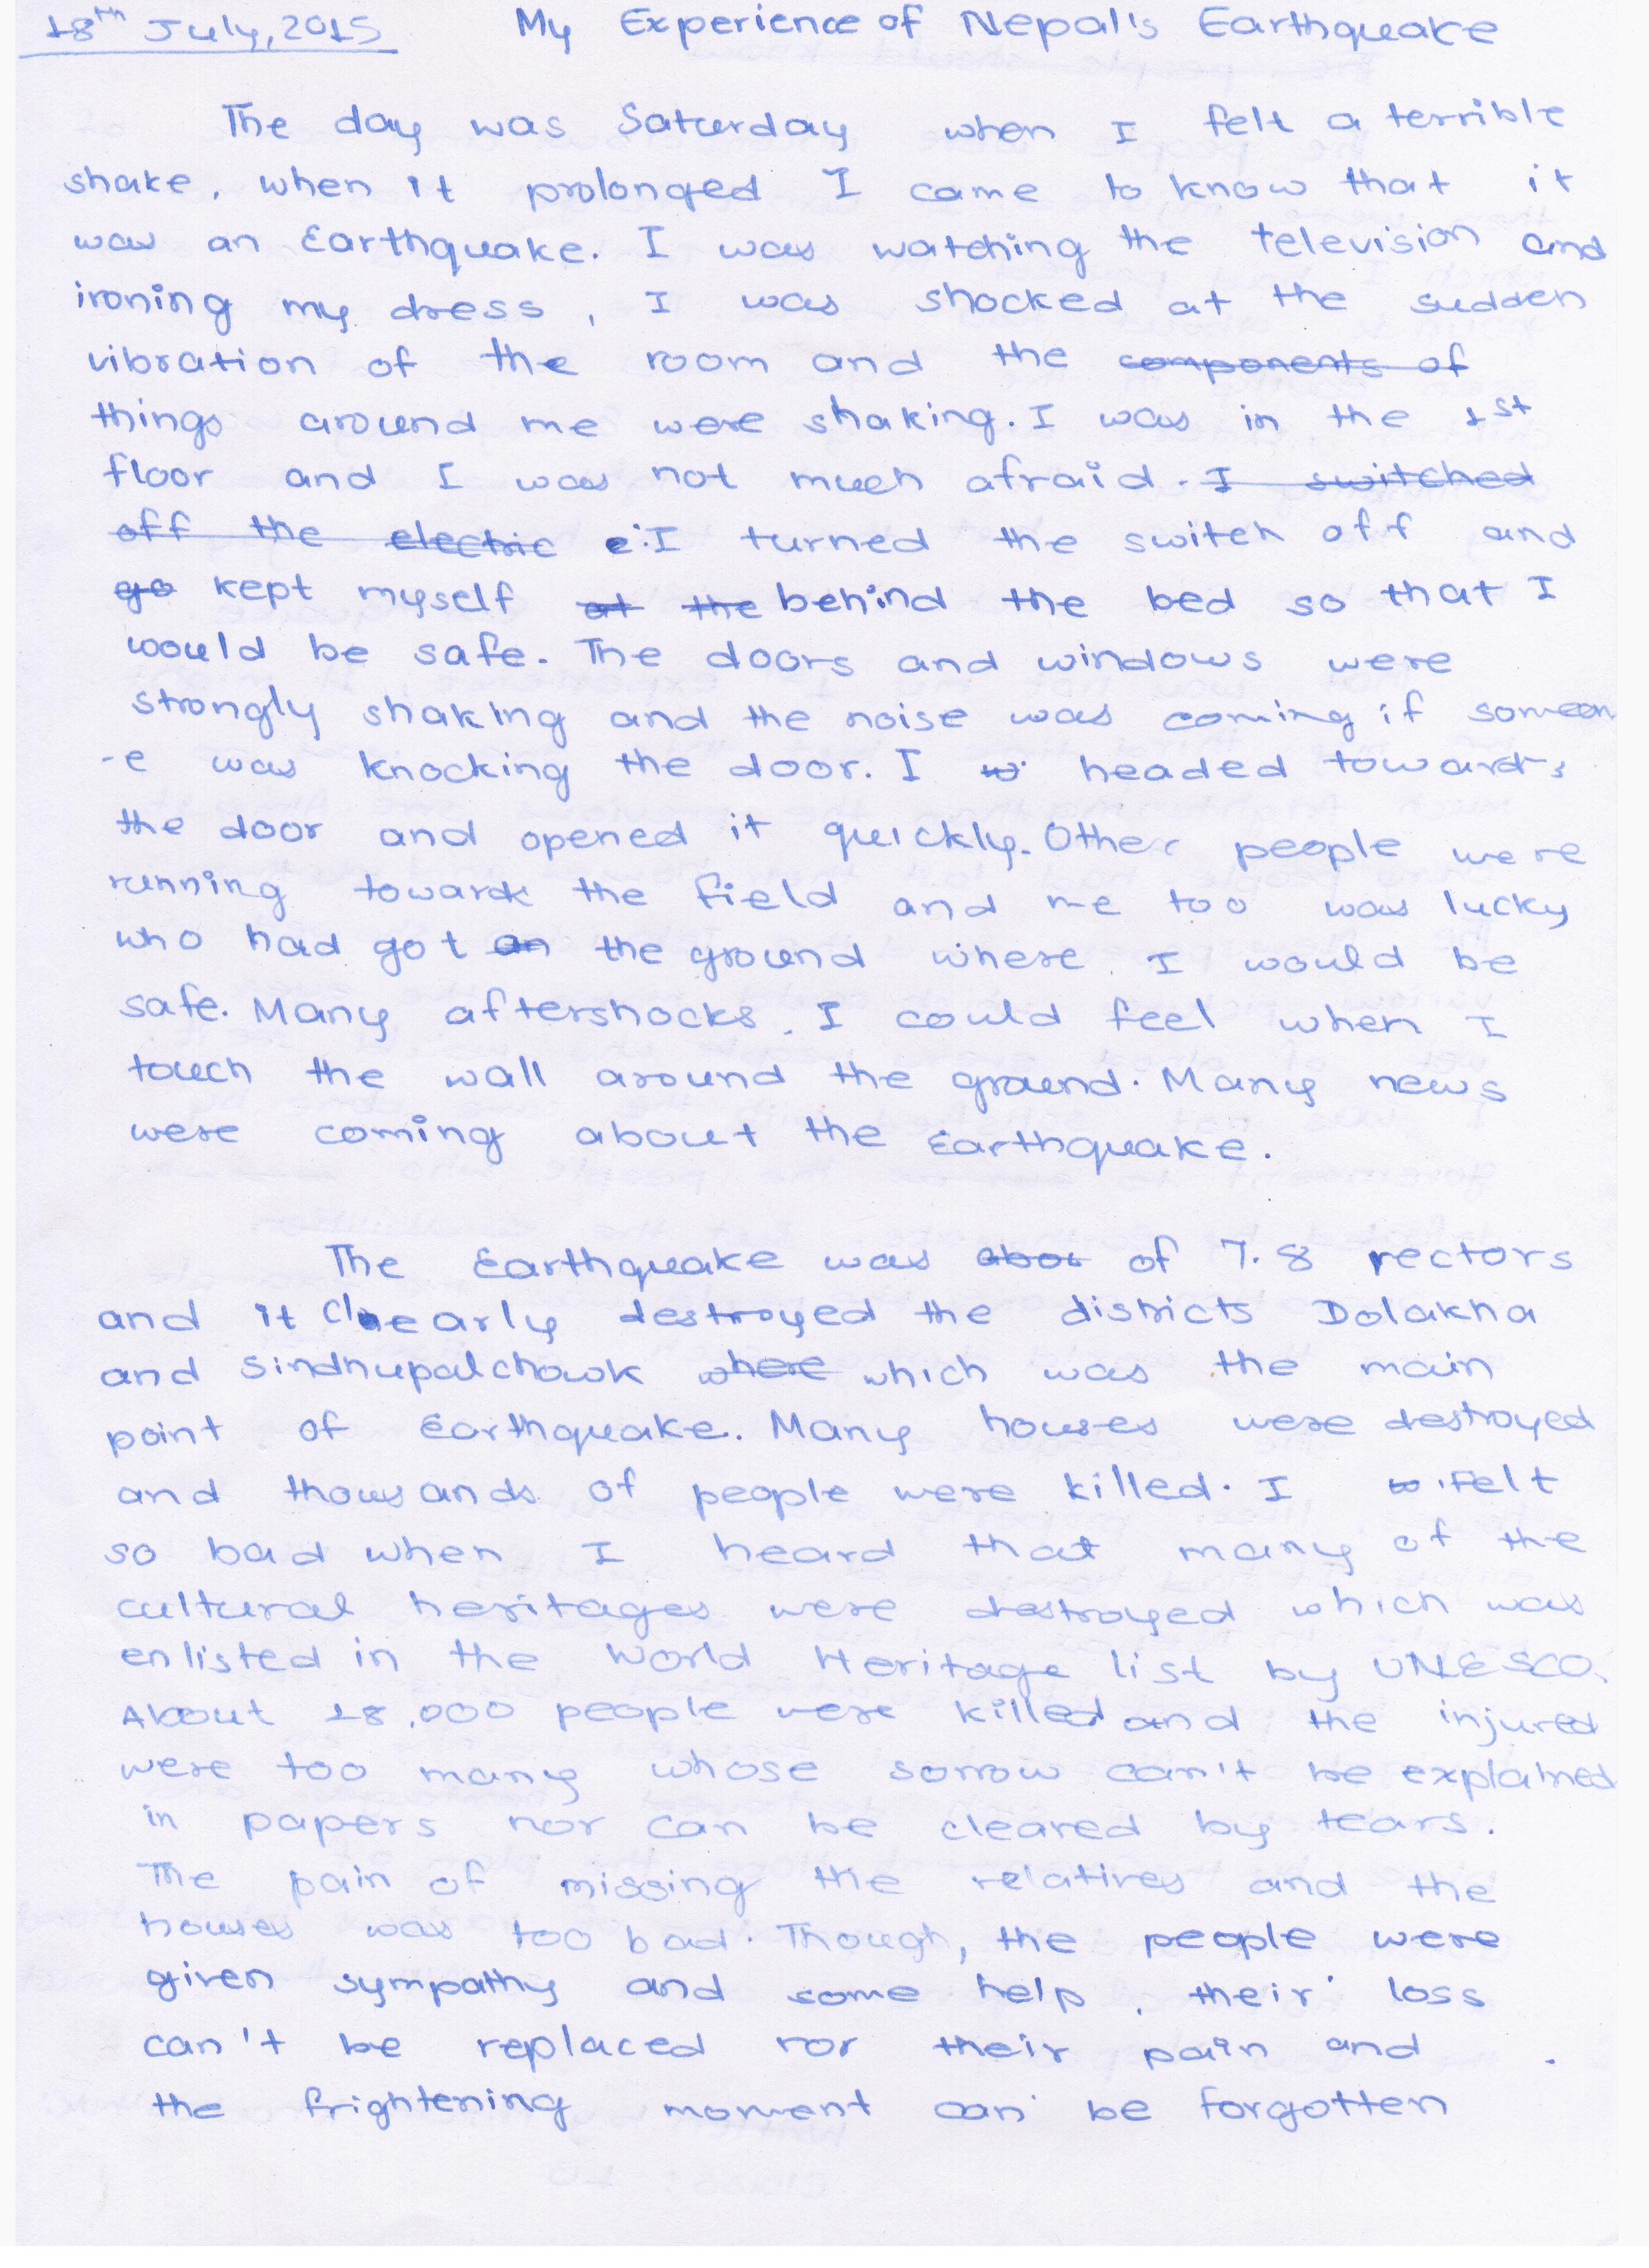 18th July, 2015 My Experience of Nepal's Earthquake
The day was Saturday when I felt a terrible
shake, when it prolonged I came to know that it
was an Earthquake. I was watching the television and
ironing my dress, I was shocked at the sudden
vibration of the room and the components of
things around me were shaking. I was in the 1st
floor and I was not much afraid. I switched
off the electric e. I turned the switch off and
go kept myself at the behind the bed so that I
would be safe. The doors and windows were
strongly shaking and the noise was coming if someon
-e was knocking the door. I w headed towards
the door and opened it quickly. Other people were
running towards the field and me too was lucky
who had got an the ground where I would be
safe. Many aftershocks, I could feel when I
touch the wall around the ground. Many news
were coming about the Earthquake.
The Earthquake was abou of 7.8 rectors
and it clearly destroyed the districts Dolakha
and Sindhupalchowk where which was the main
point of Earthquake. Many houses were destroyed
and thousands of people were killed. I felt
so bad when I heard that many of the
cultural heritages were destroyed which was
enlisted in the World Heritage list by UNESCO.
About 18,000 people were killed and the injured
were too many whose sorrow can't be explained
in papers nor can be cleared by tears.
The pain of missing the relatives and the
houses was too bad. Though, the people were
given sympathy and some help, their loss
can't be replaced nor their pain and
the frightening moment can be forgotten